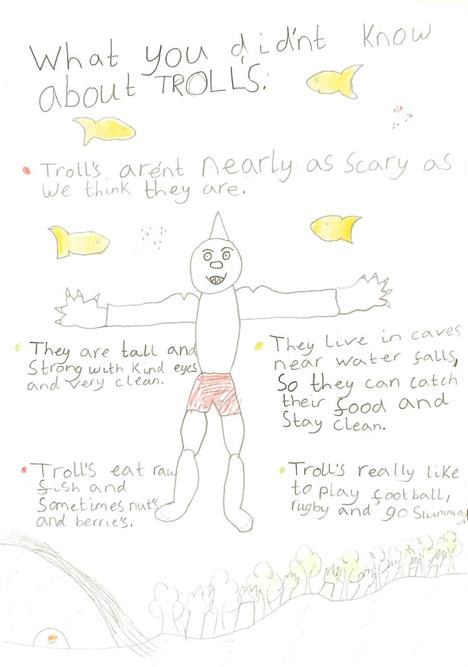 What you did'nt know
about TROLL'S:
Troll's are'nt nearly as scary as
we think they are.
They are tall and
Strong with kind eyes
and very clean.
They live in caves
near water falls,
So they can catch
their food and
Stay clean.
Troll's eat raw
fish and
Sometimes nut's
and berrie's.
Troll's really like
to play football,
rugby and go Swimming